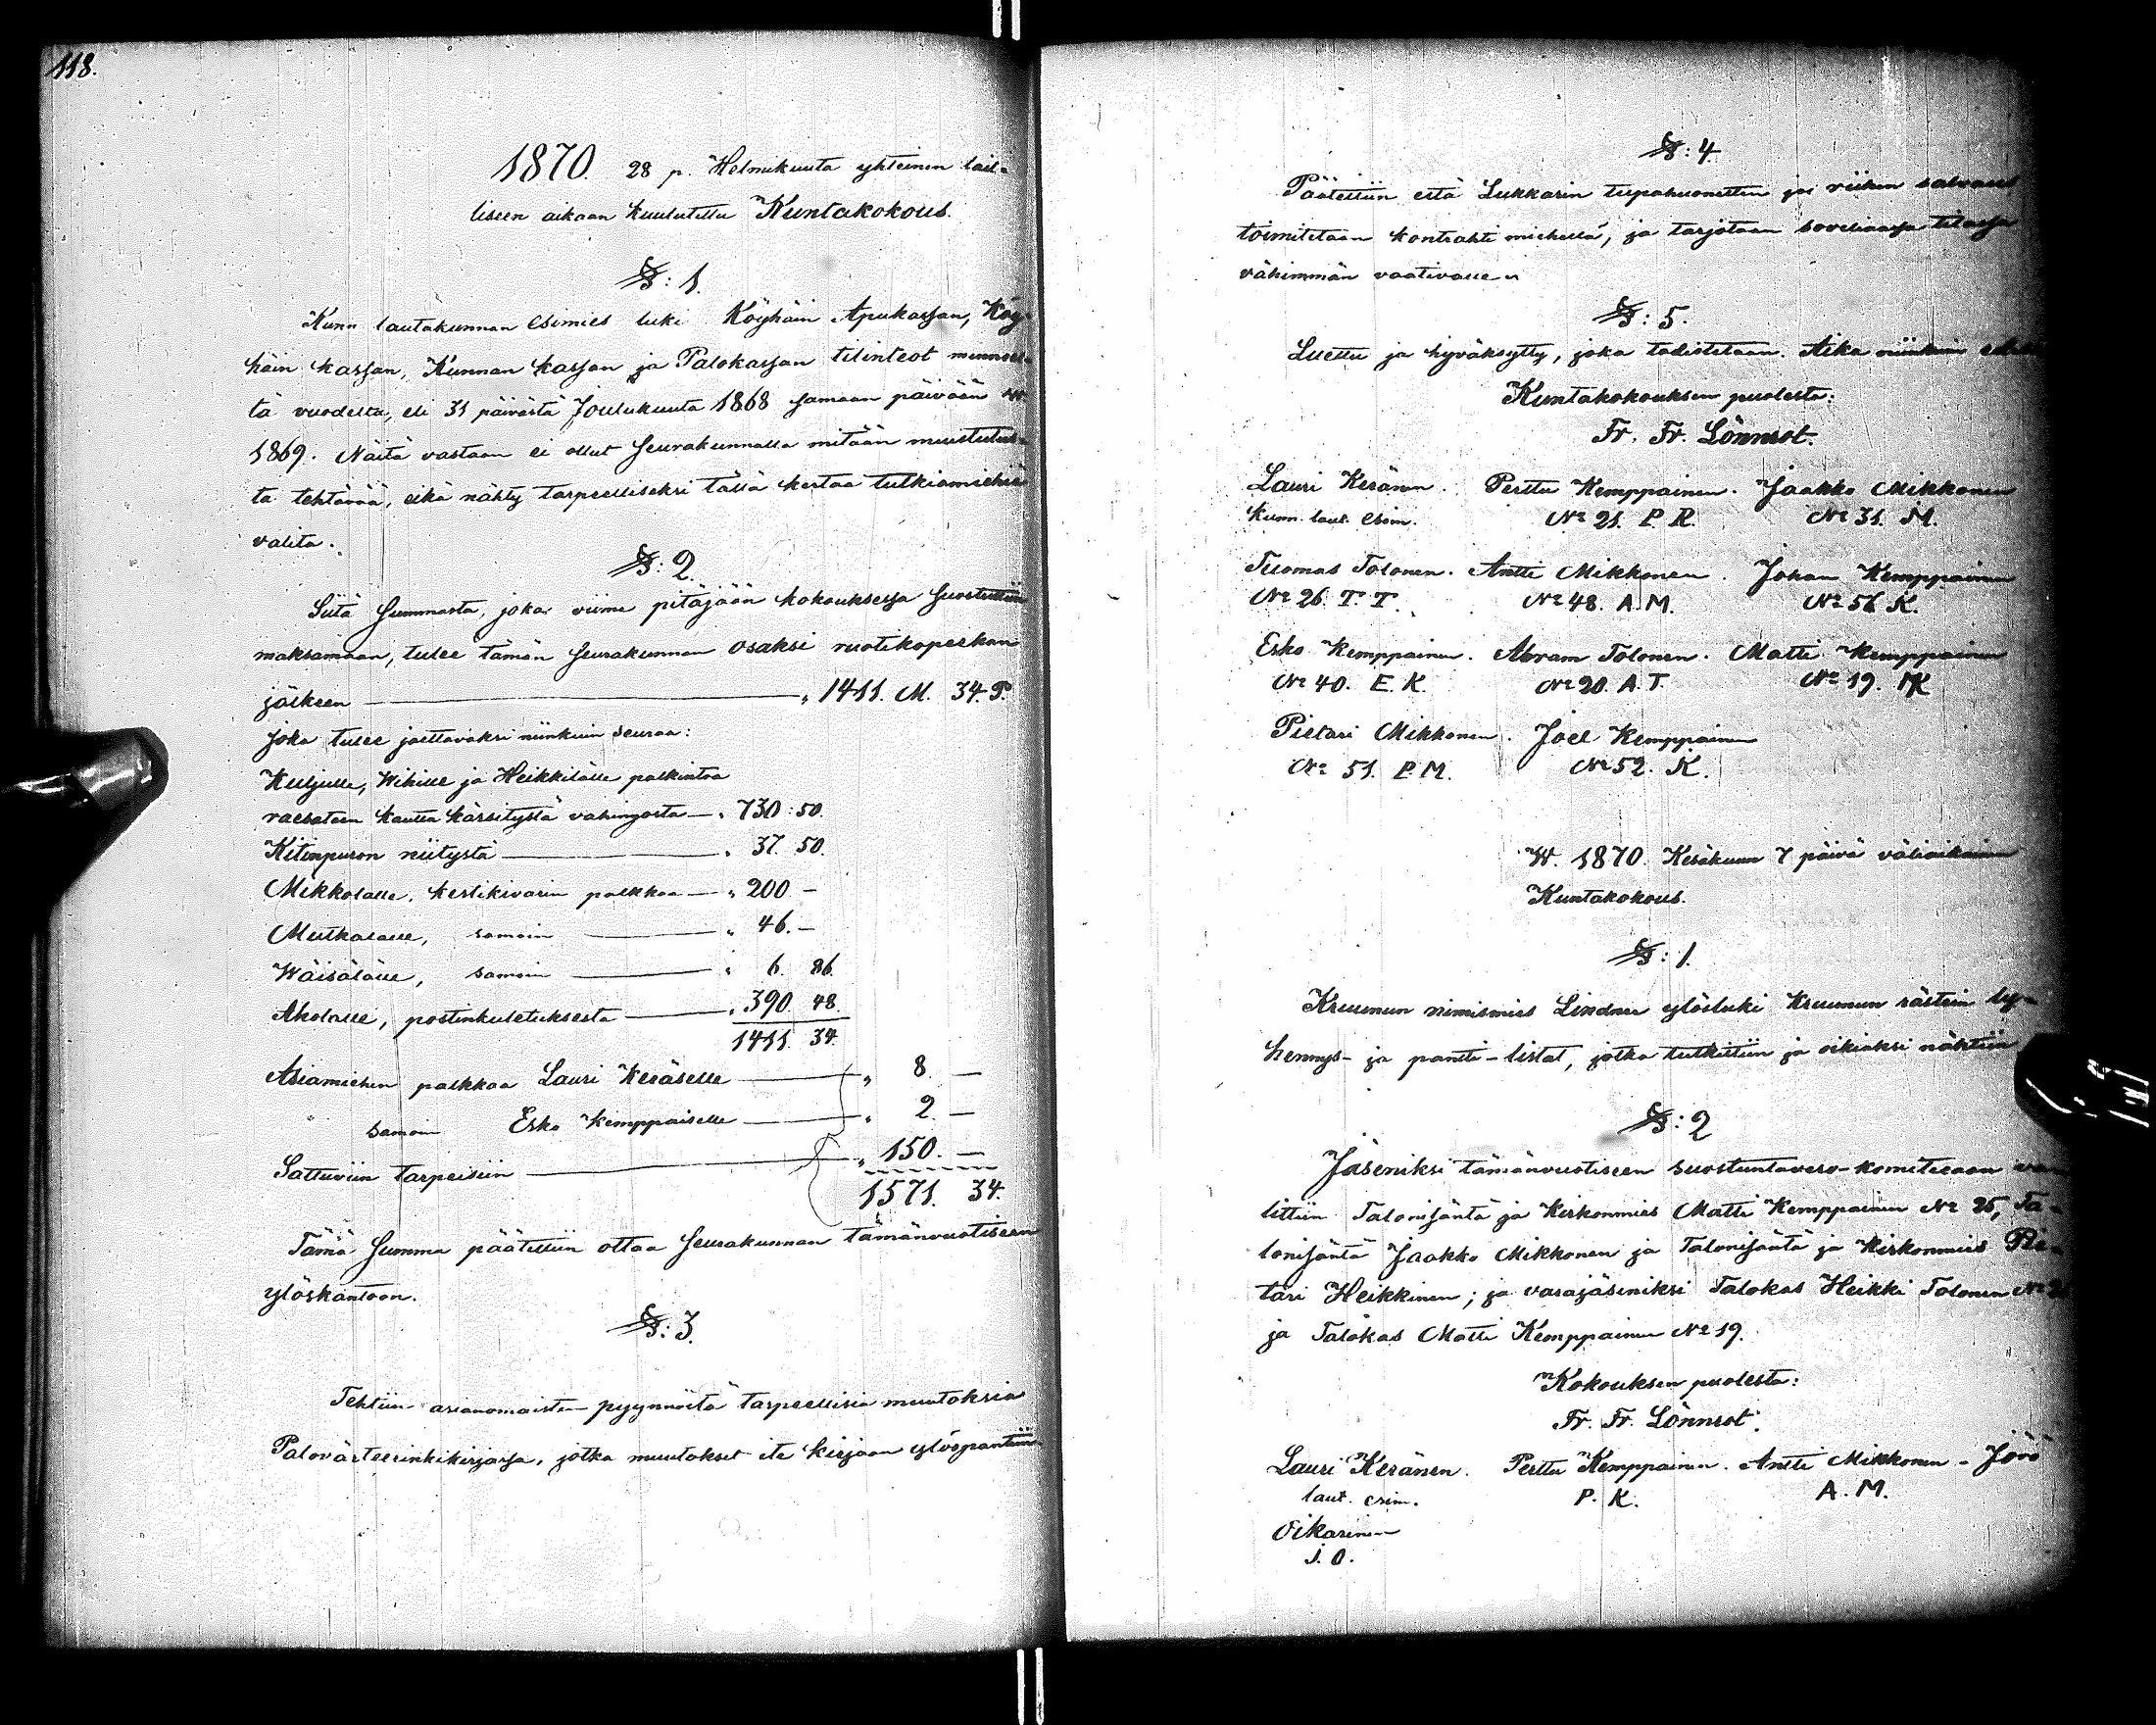 118.
1870. 28 p. Helmikuuta yhteinen lail-
liseen aikaan kuulutettu Kuntakokous.
§: 1.
Kunn lautakunnan esimies luki Köyhäin Apukassan, Köy-
häin kassan, Kunnan kassan ja Palokassan tilinteot mennees-
tä vuodelta, eli 31 päivästä Joulukuuta 1868 samaan päivään
1869. Näitä vastaan ei ollut Seurakunnalla mitään muistutus-
ta tehtävää, eikä nähty tarpeelliseksi tällä kertaa tutkiamiehiä
valita.
§: 2.
Siitä Summasta, joka viime pitäjään kokouksessa suostuttiin
maksamaan, tulee tämän Seurakunnan osaksi ruotikopeekan
jälkeen — „ 1411. M. 34. P.
Joka tulee jaettavaksi niinkuin seuraa:
Kuljulle, Wihille ja Heikkilälle palkintoa
raesateen kautta kärsitystä vahingosta — „ 730: 50.
Kitinpuron niitystä — „ 37. 50.
Mikkolalle, kestikivarin palkkaa — „ 200 —
Mutkalalle, samoin — „ 46. —
Wäisälälle, samoin — „ 6. 86.
Aholalle, postinkuletuksesta — „ 390. 48.
1411. 34.
Asiamiehen palkkaa Lauri Keräselle — „ 8. —
samoin Esko Kemppaiselle — „ 2. —
Sattuviin tarpeisiin — „ 150. —
1571. 34.
Tämä Summa päätettiin ottaa Seurakunnan tämänvuotiseen
ylöskantoon.
§: 3.
Tehtiin asianomaisten pyynnöitä tarpeellisia muutoksia
Palovärteerinkikirjassa, jotka muutokset ite kirjaan ylöspantiin
§: 4.
Päätettiin että Lukkarin tupahuonetten ja riihen salvaus
toimitetaan kontrahti miehellä, ja tarjotaan soveliaassa tilassa
vähimmän vaativalle.
§: 5.
Luettu ja hyväksytty, joka todistetaan. Aika niinkuin
Kuntakokouksen puolesta:
Fr. Fr. Lönnrot.
Lauri Keränen. Perttu Kemppainen. Jaakko Mikkonen
kunn. laut. esim. No 21. P. K. No 31. M.
Tuomas Tolonen. Antti Mikkonen. Johan Kemppainen
No 26. T. T. No 48. A. M. No 56 K.
Esko Kemppainen. Abram Tolonen. Matti Kemppainen
No 40. E. K. No 20. A. T. No 19. MK
Pietari Mikkonen. Joel Kemppainen
No 51. P. M. No 52. K.
W. 1870. Kesäkuun 7 päivä väliaikainen
Kuntakokous.
§: 1.
Kruunun nimismies Lindner ylösluki Kruunun rästein ly-
hennys- ja pantti-listat, jotka tutkittiin ja oikiaksi nähtiin
§: 2
Jäseniksi tämänvuotiseen suostuntavero-komiteeaan va-
littiin Talonisäntä ja Kirkonmies Matti Kemppainen No 25, Ta-
lonisäntä Jaakko Mikkonen ja Talonisäntä ja Kirkonmies Pie-
tari Heikkinen; ja varajäseniksi Talokas Heikki Tolonen
ja Talokas Matti Kemppainen No 19.
Kokouksen puolesta:
Fr. Fr. Lönnrot.
Lauri Keränen. Perttu Kemppainen. Antti Mikkonen - Jörö
laut. esim. P. K. A. M.
Oikarinen
J. O.